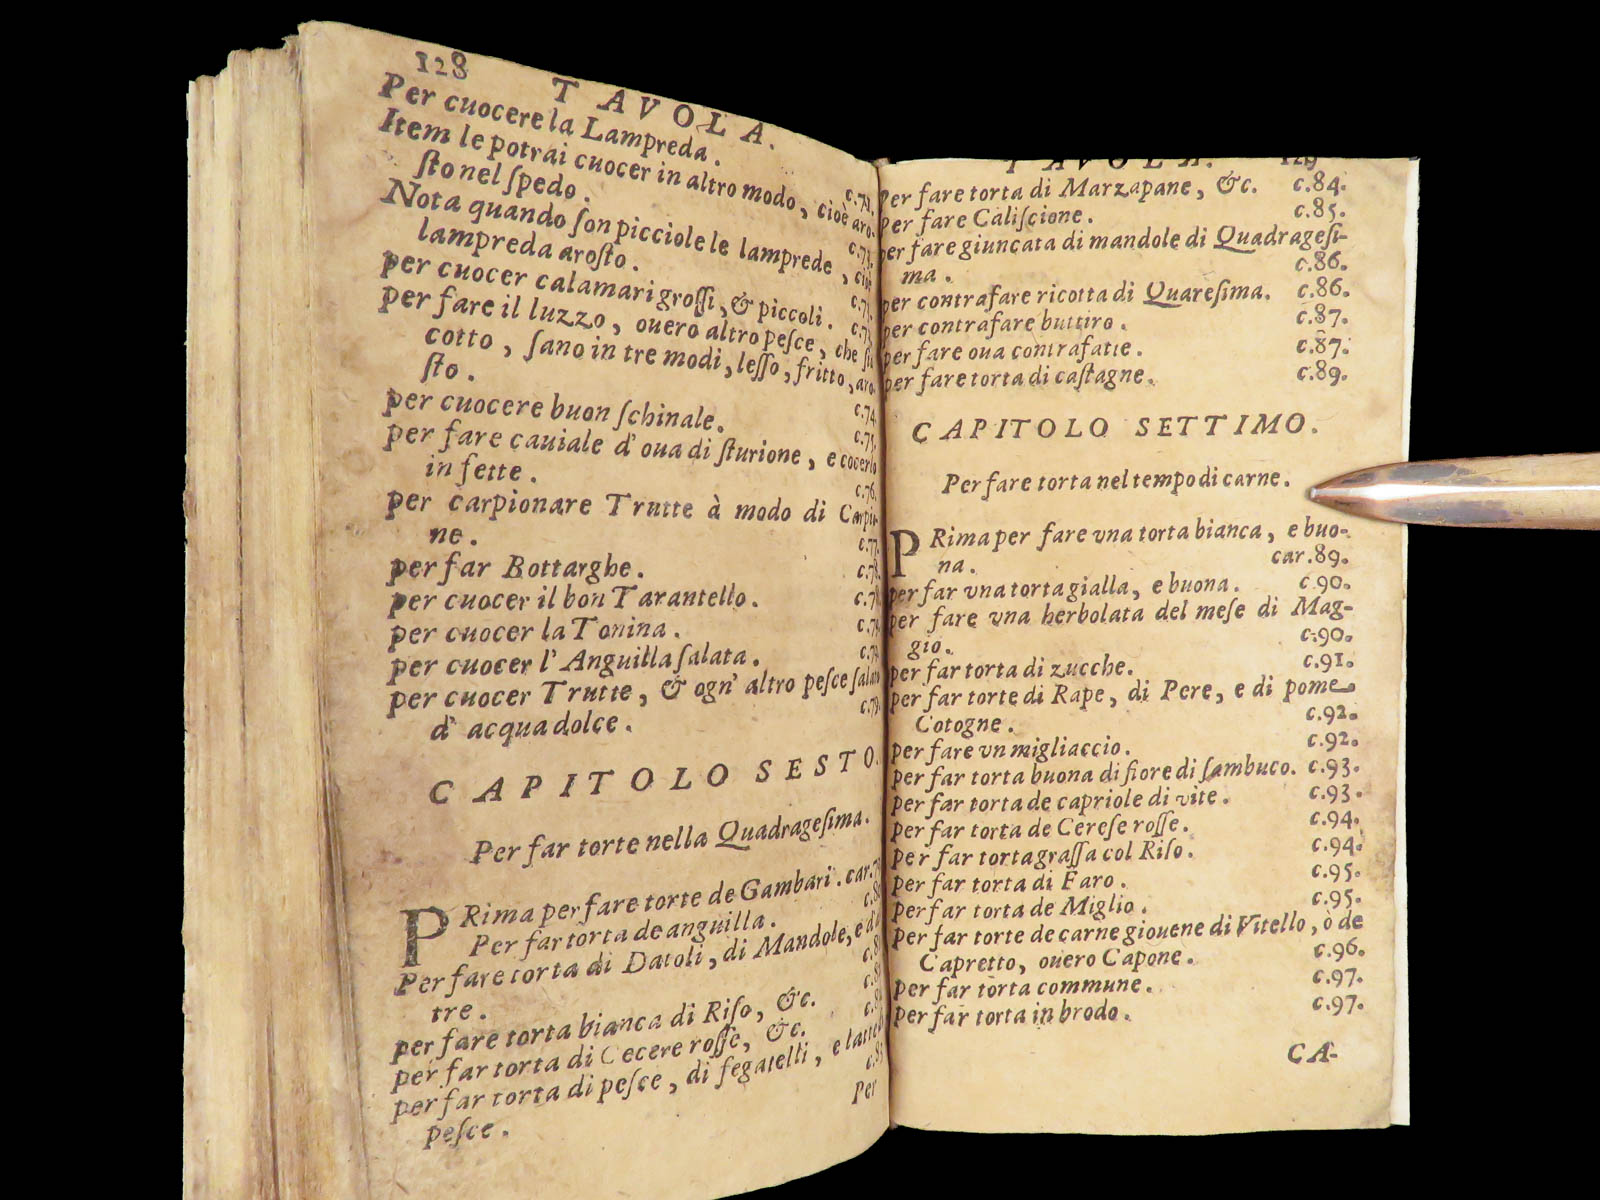 128
TAVOLA.
Per cuocere la Lampreda.
Item le potrai cuocer in altro modo, cioè aro-
ſto nel ſpedo.
Nota quando ſon picciole le lamprede, cioè
lampreda aroſto.
per cuocer calamari groſſi, & piccoli.
per fare il luzzo, ouero altro peſce, che ſia
cotto, ſano in tre modi, leſſo, fritto, aro-
ſto. c.74.
per cuocere buon ſchinale. c.75.
per fare cauiale d'oua di ſturione, e cocerlo
in fette. c.76.
per carpionare Trutte à modo di Carpio-
ne. c.77.
per far Bottarghe.
per cuocer il bon Tarantello.
per cuocer la Tonina.
per cuocer l'Anguilla ſalata.
per cuocer Trutte, & ogn' altro peſce ſalato
d'acqua dolce. c.79.
CAPITOLO SESTO.
Per far torte nella Quadrageſima.
PRima per fare torte de Gambari. car.
Per far torta de anguilla.
Per fare torta di Datoli, di Mandole, e d'
tre.
per fare torta bianca di Riſo, &c.
per far torta di Cecere roſſe, &c.
per far torta di peſce, di fegatelli, e latte
peſce.
Per
TAVOLA. 129
Per fare torta di Marzapane, &c. c.84.
Per fare Caliſcione. c.85.
per fare giuncata di mandole di Quadrageſi-
ma. c.86.
per contrafare ricotta di Quareſima. c.86.
per contrafare buttiro. c.87.
per fare oua contrafatte. c.87.
per fare torta di caſtagne. c.89.
CAPITOLO SETTIMO.
Per fare torta nel tempo di carne.
PRima per fare vna torta bianca, e buo-
na. car.89.
per far vna torta gialla, e buona. c.90.
per fare vna herbolata del meſe di Mag-
gio. c.90.
per far torta di zucche. c.91.
per far torte di Rape, di Pere, e di pome
Cotogne. c.92.
per fare vn migliaccio. c.92.
per far torta buona di fiore di ſambuco. c.93.
per far torta de capriole di vite. c.93.
per far torta de Cereſe roſſe. c.94.
per far torta graſſa col Riſo. c.94.
per far torta di Faro. c.95.
per far torta de Miglio. c.95.
per far torte de carne giouene di Vitello, ò de
Capretto, ouero Capone. c.96.
per far torta commune. c.97.
per far torta in brodo. c.97.
CA-